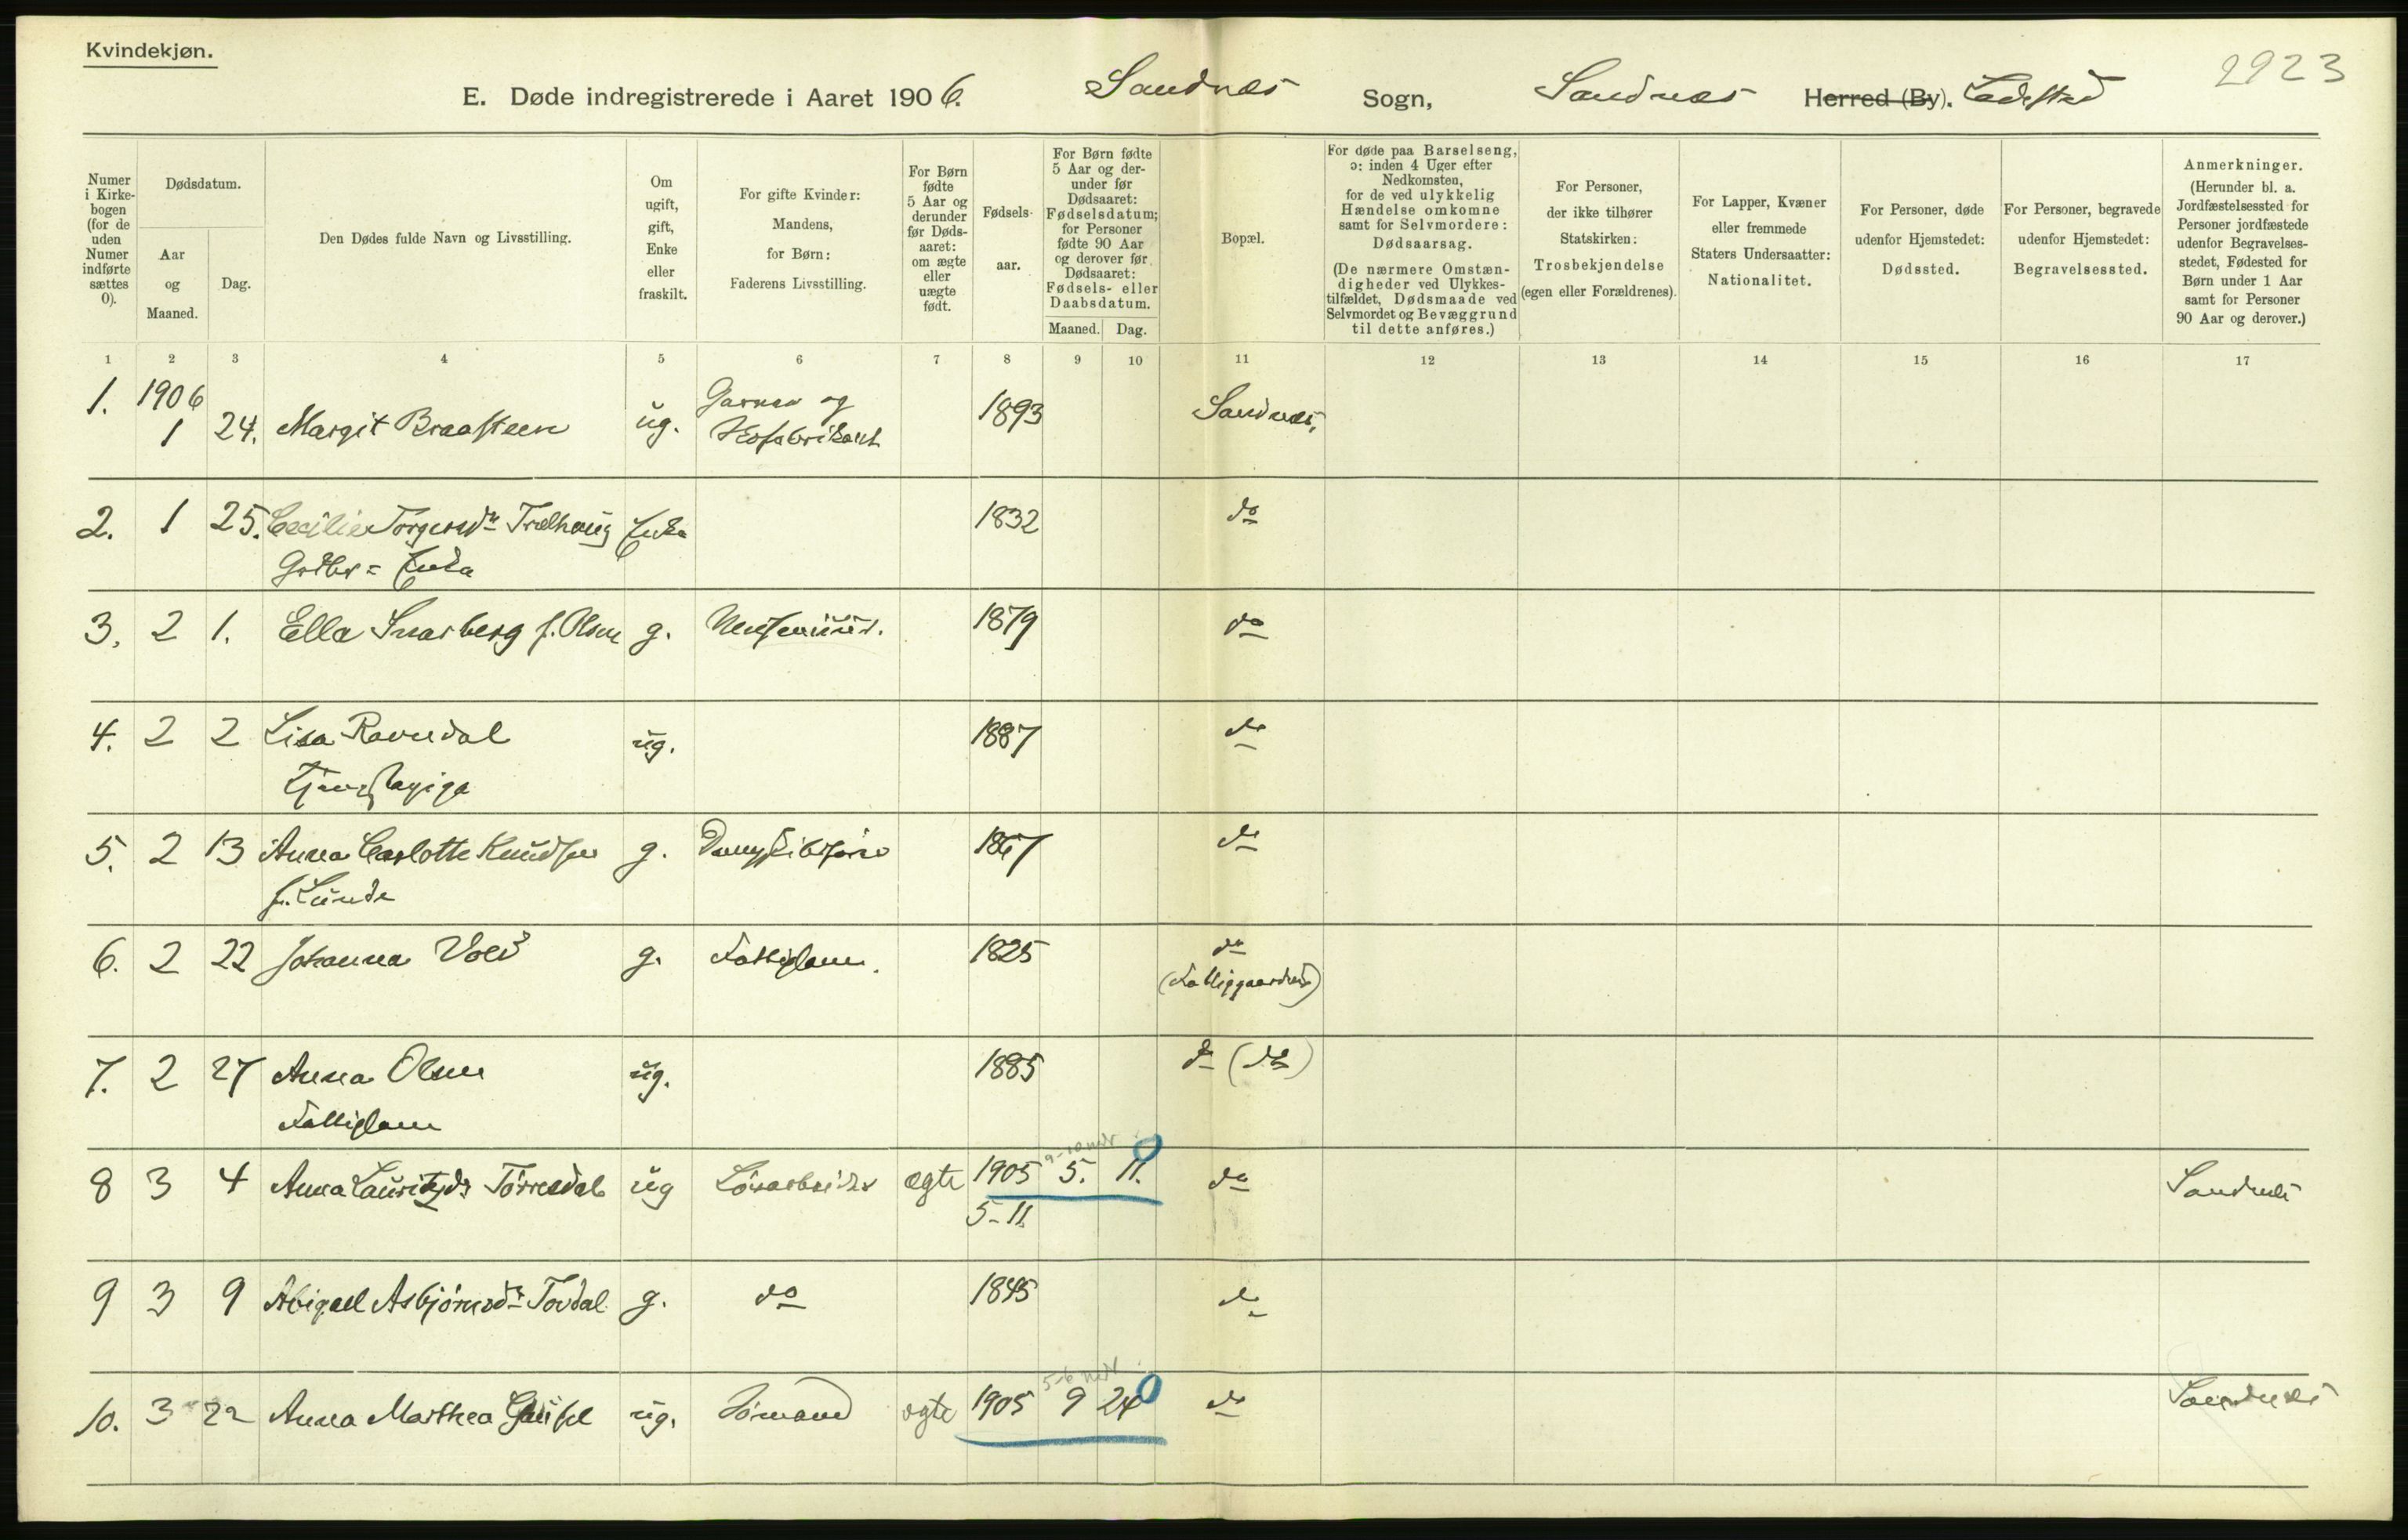 Kvindekjøn.
2923
E. Døde indregistrerede i Aaret 1906. Sandnæs Sogn, Sandnæs Herred (By). Ladested
Numer i Kirkebogen (for de uden Numer indførte sættes 0).
Dødsdatum.
Aar og Maaned.
Dag.
Den Dødes fulde Navn og Livsstilling.
Om ugift, gift, Enke eller fraskilt.
For gifte Kvinder: Mandens, for Børn: Faderens Livsstilling.
For Børn fødte 5 Aar og derunder før Dødsaaret: om ægte eller uægte født.
Fødselsaar.
For Børn fødte 5 Aar og derunder før Dødsaaret: Fødselsdatum; for Personer fødte 90 Aar og derover før Dødsaaret: Fødsels- eller Daabsdatum.
Maaned. Dag.
Bopæl.
For døde paa Barselseng, ɔ: inden 4 Uger efter Nedkomsten, for de ved ulykkelig Hændelse omkomne samt for Selvmordere: Dødsaarsag.
(De nærmere Omstændigheder ved Ulykkestilfældet, Dødsmaade ved Selvmordet og Bevæggrund til dette anføres.)
For Personer, der ikke tilhører Statskirken: Trosbekjendelse (egen eller Forældrenes).
For Lapper, Kvæner eller fremmede Staters Undersaatter: Nationalitet.
For Personer, døde udenfor Hjemstedet: Dødssted.
For Personer, begravede udenfor Hjemstedet: Begravelsessted.
Anmerkninger.
(Herunder bl. a. Jordfæstelsessted for Personer jordfæstede udenfor Begravelsesstedet, Fødested for Børn under 1 Aar samt for Personer 90 Aar og derover.)
1 2 3 4 5 6 7 8 9 10 11 12 13 14 15 16 17
1. 1906 1 24. Margit Braasteen ug. Garver og 1893 Sandnæs,
2. 1 25. Cecilie Torgersdr Trælhaug Enke 1832 do
Gdbr = Enke
3. 2 1. Ella Snarberg f. Olsen g. 1879 do
4. 2 2 Lisa Ravndal ug. 1887 do
5. 2 13 Anna Carlotte Knudsen g. 1867 do
f. Lunde
6. 2 22 Johanna Vold g. Fattiglem. 1825 do
(Fattiggaarden)
7. 2 27 Anna Olsen ug. 1885 do (do)
Fattiglem
9-10 mdr
8 3 4 Anna Lauritzdr Tórresdal ug Løsarbeider ægte 1905 5. 11. 0 do Sandnæs
5-11
9 3 9 Abigael Asbjørnsdr Tovdal g. do 1845 do
5-6 mdr
10. 3 22 Anna Marthea ug. Sømand ægte 1905 9 24 0 do Sandnæs